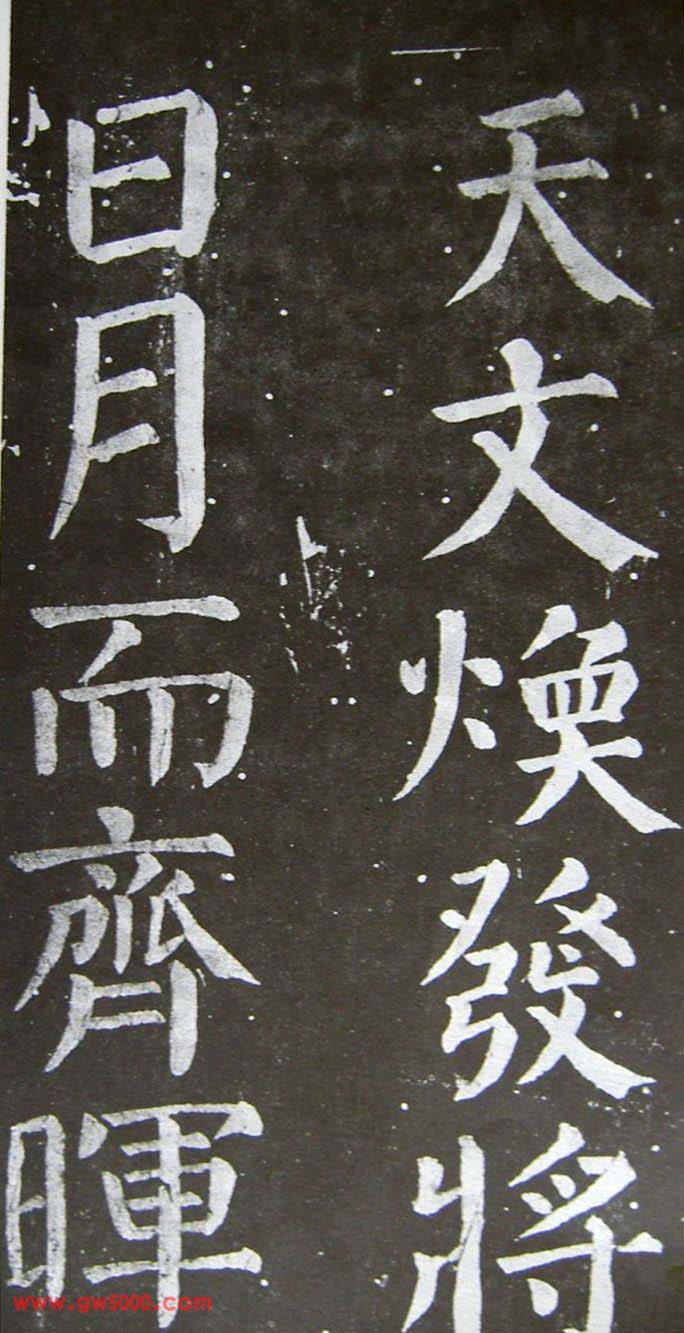 天文煥發將
日月而齊暉
www.gw5000.com